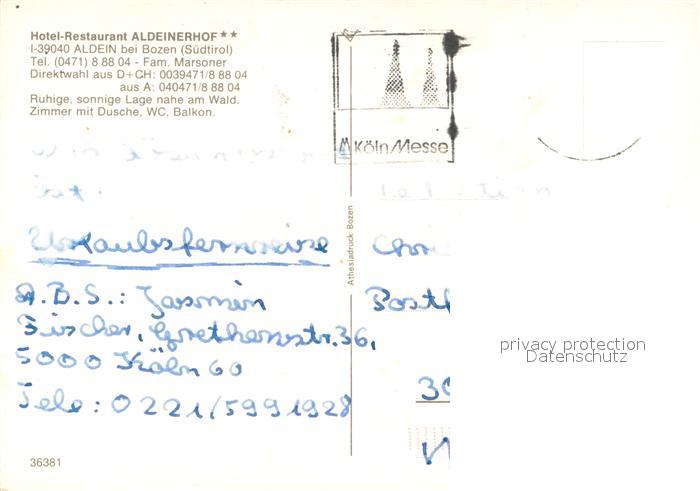 Hotel-Restaurant ALDEINERHOF★★
I-39040 ALDEIN bei Bozen (Südtirol)
Tel. (0471) 8 88 04 - Fam. Marsoner
Direktwahl aus D+CH: 0039471/8 88 04
aus A: 040471/8 88 04
Ruhige, sonnige Lage nahe am Wald.
Zimmer mit Dusche, WC, Balkon.
Köln/Messe
ist:
Urlaubsfernreise
A.B.S.: Jasmin
Fischer, Goethenstr. 36,
5000 Köln 60
Tele: 0221/5991928
Athesiadruck Bozen
privacy protection
Datenschutz
36381